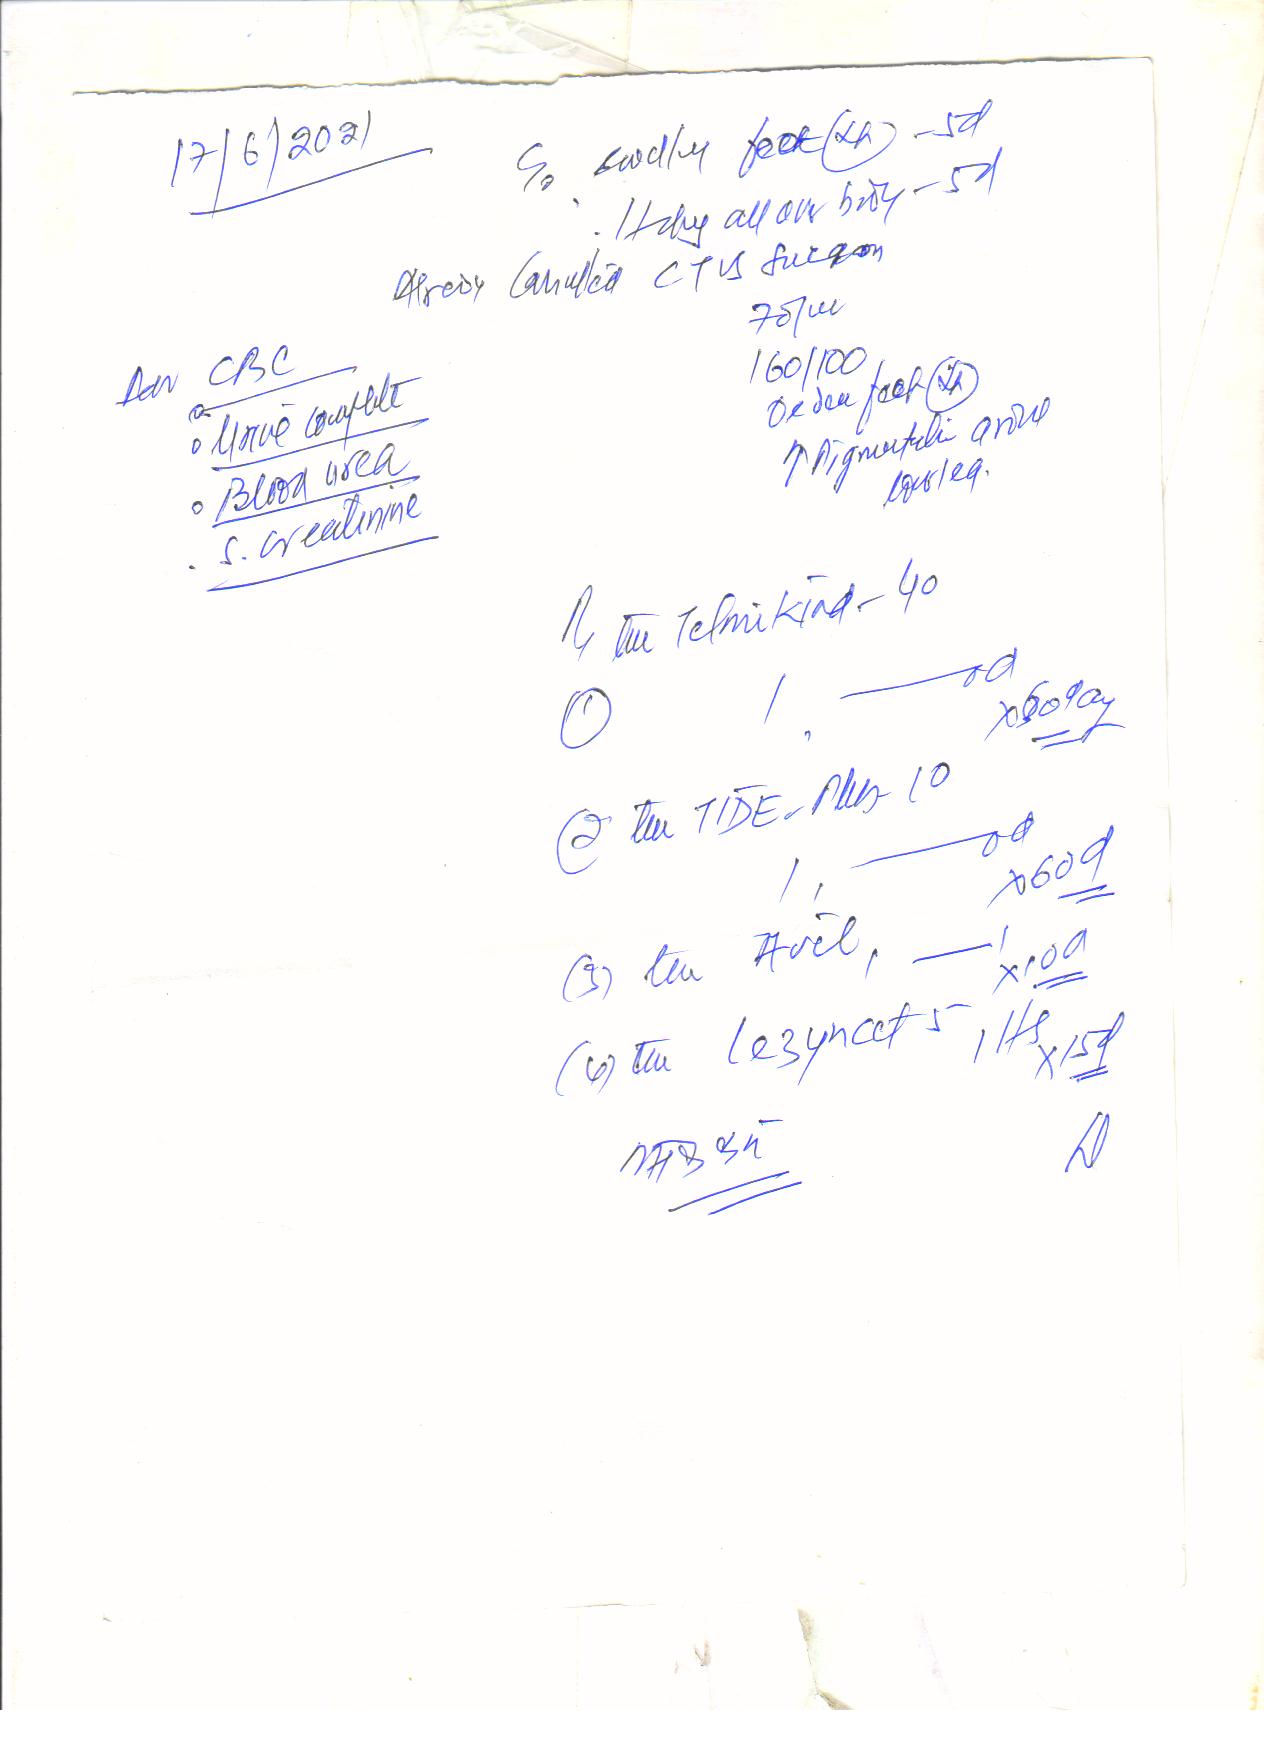 17/6/2021
C/o swelling foot (Lt) - 5d
. Itchy all over body - 5d
Already Consulted CTVS Surgeon
78/m
160/100
Oedema foot (Lt)
↑ Pigmentation around
low leg.
Adv CBC
o Urine complete
o Blood urea
. S. creatinine
Rx Tab Telmikind - 40
① 1 — od
x 60 day
② Tab TIDE-Plus 10
1 — od
x 60d
(3) Tab Avil, — 1
x 10d
(4) Tab Lezyncet 5, 1 HS
x 15d